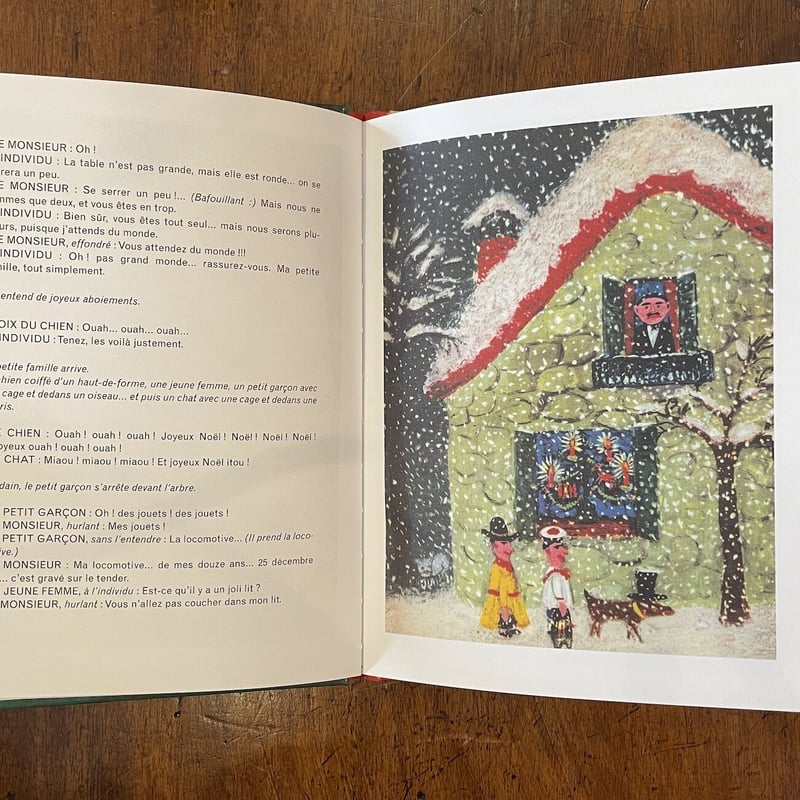 E MONSIEUR : Oh !
INDIVIDU : La table n'est pas grande, mais elle est ronde... on se
rera un peu.
E MONSIEUR : Se serrer un peu !... (Bafouillant :) Mais nous ne
mmes que deux, et vous êtes en trop.
INDIVIDU : Bien sûr, vous êtes tout seul... mais nous serons plu-
urs, puisque j'attends du monde.
E MONSIEUR, effondré : Vous attendez du monde !!!
INDIVIDU : Oh ! pas grand monde... rassurez-vous. Ma petite
mille, tout simplement.
entend de joyeux aboiements.
OIX DU CHIEN : Ouah... ouah... ouah...
INDIVIDU : Tenez, les voilà justement.
petite famille arrive.
chien coiffé d'un haut-de-forme, une jeune femme, un petit garçon avec
cage et dedans un oiseau... et puis un chat avec une cage et dedans une
ris.
E CHIEN : Ouah ! ouah ! ouah ! Joyeux Noël ! Noël ! Noël ! Noël !
oyeux ouah ! ouah ! ouah !
CHAT : Miaou ! miaou ! miaou ! Et joyeux Noël itou !
dain, le petit garçon s'arrête devant l'arbre.
PETIT GARÇON : Oh ! des jouets ! des jouets !
MONSIEUR, hurlant : Mes jouets !
PETIT GARÇON, sans l'entendre : La locomotive... (Il prend la loco-
ive.)
MONSIEUR : Ma locomotive... de mes douze ans... 25 décembre
... c'est gravé sur le tender.
JEUNE FEMME, à l'individu : Est-ce qu'il y a un joli lit ?
MONSIEUR, hurlant : Vous n'allez pas coucher dans mon lit.